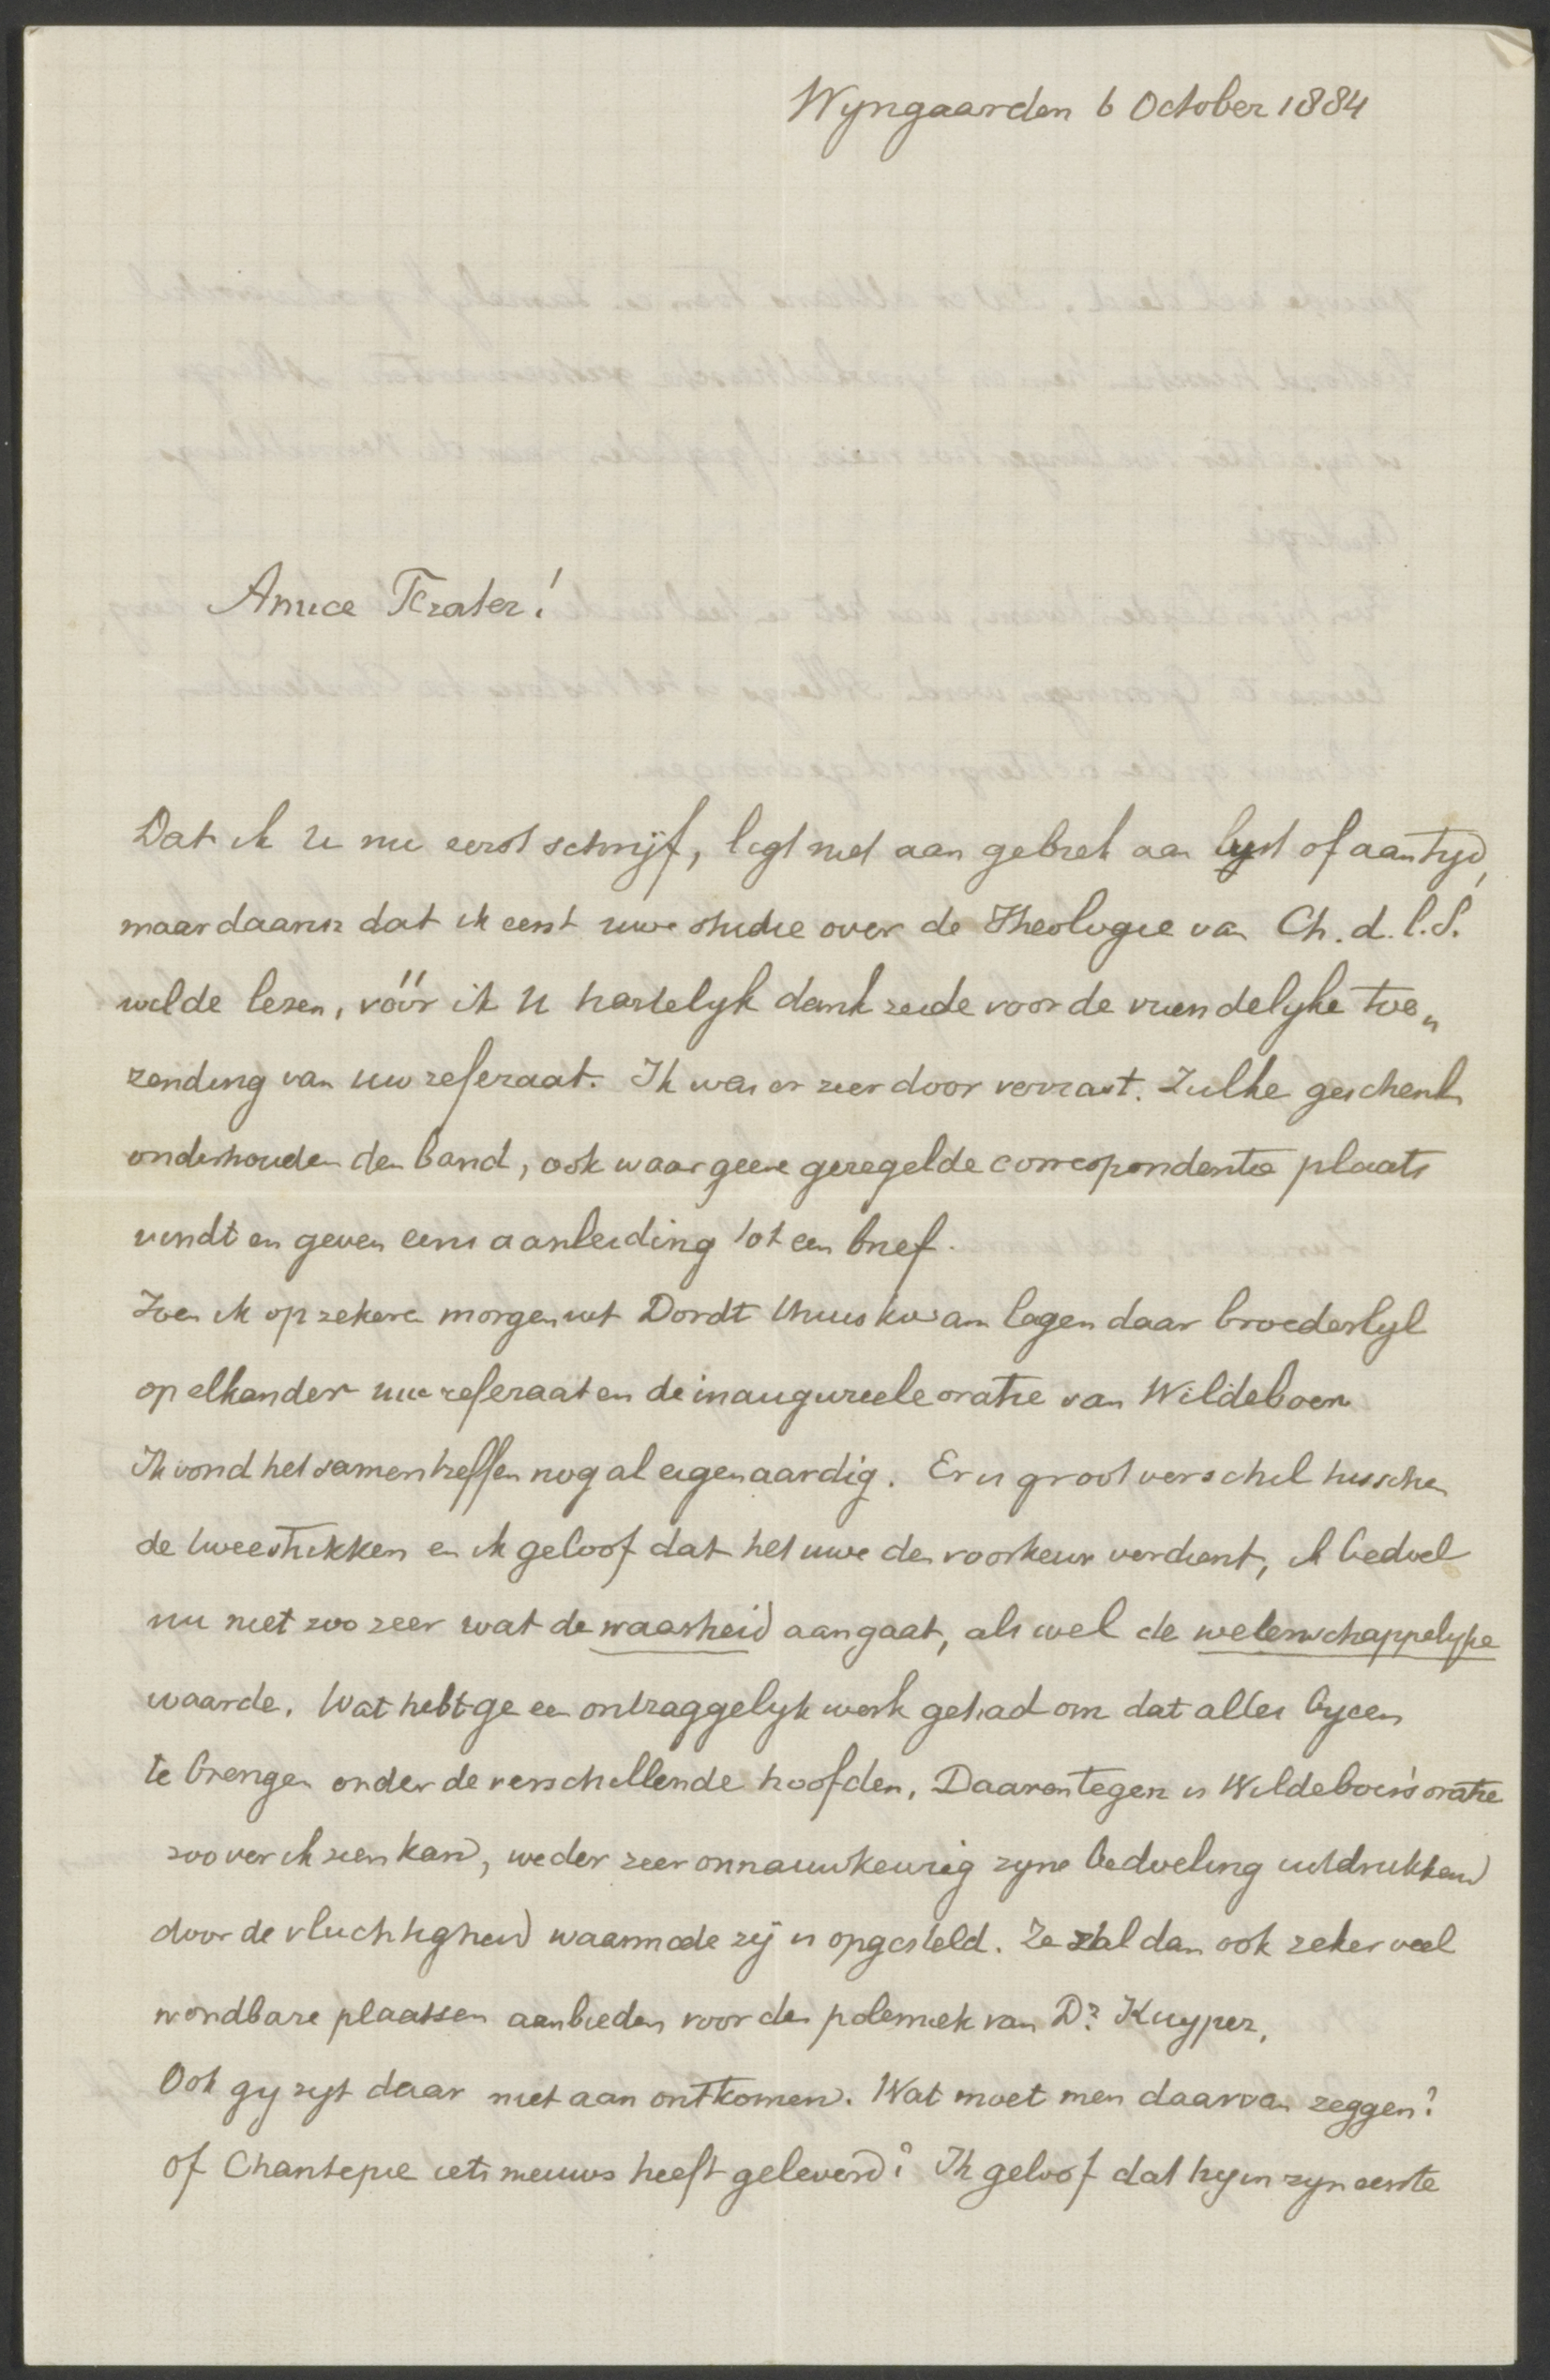 Wyngaarden 6 October 1884
Amice Frater!
Dat ik U nu eerst schrijf, ligt niet aan gebrek aan lust of aan tyd,
maar daarin dat ik eerst uwe studie over de Theologie van Ch. d. l. S.
wilde lezen, vóór ik U hartelyk dank zeide voor de vriendelyke toe„
zending van uw referaat. Ik was er zeer door verrast. Zulke geschenken
onderhouden den band, ook waar geene geregelde correspondentie plaats
vindt en geven eens aanleiding tot een brief.
Toen ik op zekeren morgen uit Dordt thuis kwam lagen daar broederlyk
op elkander uw referaat en de inaugureele oratie van Wildeboer
Ik vond het samentreffen nog al eigenaardig. Er is groot verschil tusschen
de twee stukken en ik geloof dat het uwe de voorkeur verdient, ik bedoel
nu niet zoo zeer wat de waarheid aangaat, als wel de wetenschappelyke
waarde. Wat hebt ge een ontzaggelyk werk gehad om dat alles byeen
te brengen onder de verschillende hoofden. Daarentegen is Wildeboer's oratie
zoover ik zien kan, weder zeer onnauwkeurig zyne bedoeling uitdrukkend
door de vluchtigheid waarmede zij is opgesteld. Ze zal dan ook zeker veel
wondbare plaatsen aanbieden voor de polemiek van Dr. Kuyper.
Ook gy zyt daar niet aan ontkomen. Wat moet men daarvan zeggen?
of Chantepie iets nieuws heeft geleverd? Ik geloof dat hy in zyn eerste